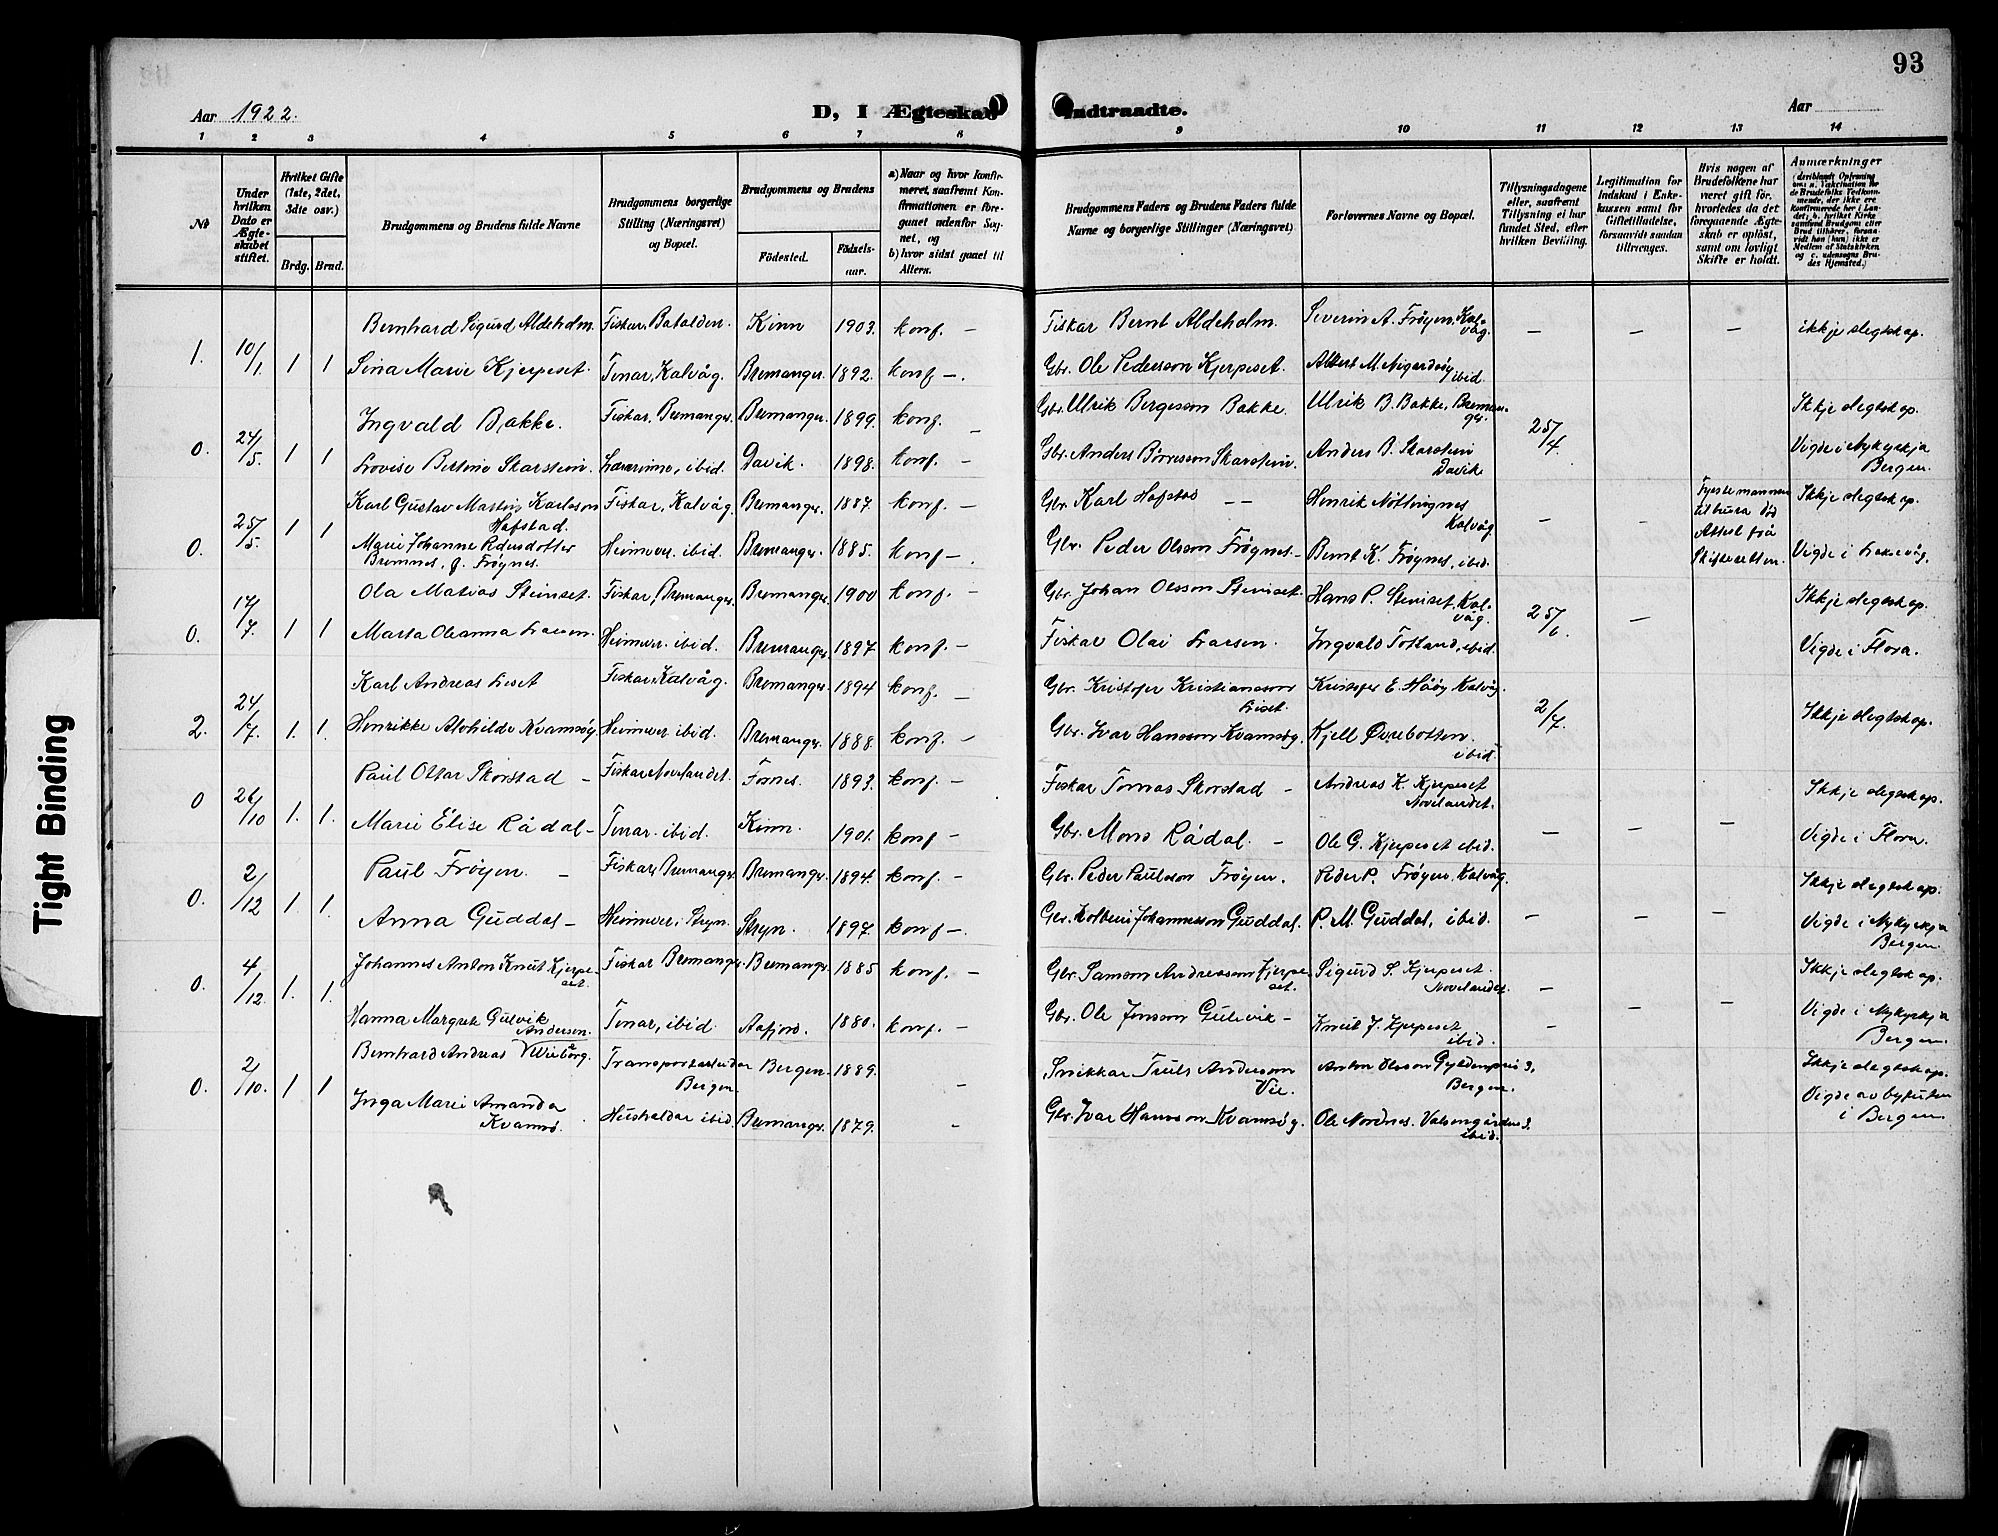 93
Aar 1922.
D, I Ægteskab
Indtraadte.
Aar
1 2 3 4 5 6 7 8
9 10 11 12 13 14
№
Under hvilken Dato er Ægteskabet stiftet.
Hvilket Gifte (1ste, 2det, 3dte osv.)
Brdg. Brud.
Brudgommens og Brudens fulde Navne
Brudgommens borgerlige Stilling (Næringsvei) og Bopæl.
Brudgommens og Brudens
Födested.
Födselsaar.
a) Naar og hvor konfirmeret, saafremt Konfirmationen er foregaaet udenfor Sognet, og
b) hvor sidst gaaet til Alters.
Brudgommens Faders og Brudens Faders fulde Navne og borgerlige Stillinger (Næringsvei)
Forlovernes Navne og Bopæl.
Tillysningsdagene eller, saafremt Tillysning ei har fundet Sted, efter hvilken Bevilling.
Legitimation for Indskud i Enkekassen samt for Giftetilladelse, forsaavidt saadan tiltrænges.
Hvis nogen af Brudefolkene har været gift før, hvorledes da det foregaaende Ægteskab er opløst, samt om lovligt Skifte er holdt.
Anmærkninger
Bernhard Sigurd Aldeholm. Fiskar, Batalden. Kinn 1903. konf. — Fiskar Bernt Aldeholm. Severin A. Frøyen, Kalvåg. — — — ikkje slegtskap.
1. 10/1. 1 1 Sina Marie Kjerpeset. Tenar, Kalvåg. Bremanger. 1892. konf —. Gbr. Ole Pedersson Kjerpeset. Albert M. Nigardsøy ibid.
Ingvald Bakke. Fiskar, Bremanger. Bremanger. 1899. konf. — Gbr. Ulrik Bergesson Bakke. Ulrik B. Bakke, Bremanger. 25/4. Ikkje slegtskap.
0. 24/5. 1 1 Lovise Bertine Skarstein. Lærarinne, ibid. Davik. 1898. konf. — Gbr. Anders Børresson Skarstein. Anders B. Skarstein Davik Vigde i Nykyrkja Bergen.
Karl Gustav Martin Karlsson Hofstad. Fiskar, Kalvåg. Bremanger. 1887. konf. — Gbr. Karl Hofstad — — Henrik Nøttingnes Kalvåg — — Fyrste mannen til brura død Attest frå Skifteretten. Ikkje slegtskap.
0. 25/5. 1 1 Marie Johanne Pedersdotter Bremnes, f. Frøynes. Heimver. ibid. Bremanger. 1885. konf —. Gbr. Peder Olsson Frøynes. — Bernt K. Frøynes, ibid. Vigde i Laksevåg.
Ola Matias Steinset. Fiskar, Bremanger. Bremanger. 1900 konf. — Gbr. Johan Olsson Steinset. Hans P. Steinset, Kalvåg. 25/6. — Ikkje slegtskap.
0. 17/7. 1 1 Marta Oleanna Larsen. Heimver. ibid. Bremanger. 1897. konf. — Fiskar Olai Larsen. Ingvald Totland, ibid. Vigde i Flora.
Karl Andreas Liset Fiskar, Kalvåg. Bremanger. 1894 konf. — Gbr. Kristofer Kristiansson Liset. Kristofer E. Håøy Kalvåg. 2/7.
2. 24/7. 1. 1. Henrikke Alvhilde Kvamsøy. Heimver ibid. Bremanger. 1888. konf. — Gbr. Ivar Hansson Kvamsøy. Kjell Øvrebotten ibid. Ikkje slegtskap.
Paul Ottar Skorstad — Fiskar Novelandet. Fosnes. 1893. konf. — Fiskar Tomas Skorstad — Andreas K. Kjerpeset Novelandet. Ikkje slegtskap.
0 26/10 1. 1. Marie Elise Rådal — Tenar. ibid. Kinn. 1901. konf. — Gbr. Mons Rådal. — Ole G. Kjerpeset ibid. — — — Vigde i Flora.
Paul Frøyen. — Fiskar, Bremanger. Bremanger. 1894. konf. — Gbr. Peder Paulsson Frøyen. Peder P. Frøyen. Kalvåg. Ikkje slegtskap.
0. 2/12 1. 1. Anna Guddal — Heimver, Stryn. Stryn. 1897. konf —. Gbr. Kolbein Johannesson Guddal. P. M. Guddal, ibid. — — — Vigde i Nykyrkja Bergen.
Johannes Anton Knut Kjerpeset. Fiskar Bremanger. Bremanger. 1885 konf. — Gbr. Samson Andreasson Kjerpeset. Sigurd S. Kjerpeset. Novelandet. — Ikkje slegtskap.
0. 4/12. 1. 1. Hanna Margrete Gulvik Andersen. Tenar, ibid. Aafjord. 1880. konf. — Gbr. Ole Jensson Gulvik — Knut J. Kjerpeset ibid. — — — Vigde i Nykyrkja Bergen.
Bernhard Andreas Wiborg. Transportarbeidar Bergen. Bergen. 1889. — Snikkar Truls Anderson Vie. Anton Olsson Gyldenpris 3. Bergen. Ikkje slegtskap.
0. 2/10. 1 1 Inga Marie Amanda Kvamsø. Hushaldar ibid. Bremanger. 1879. — Gbr. Ivar Hansson Kvamsøy. Ole Nordnes. ibid. Vigde av byfuten i Bergen.
Tight Binding